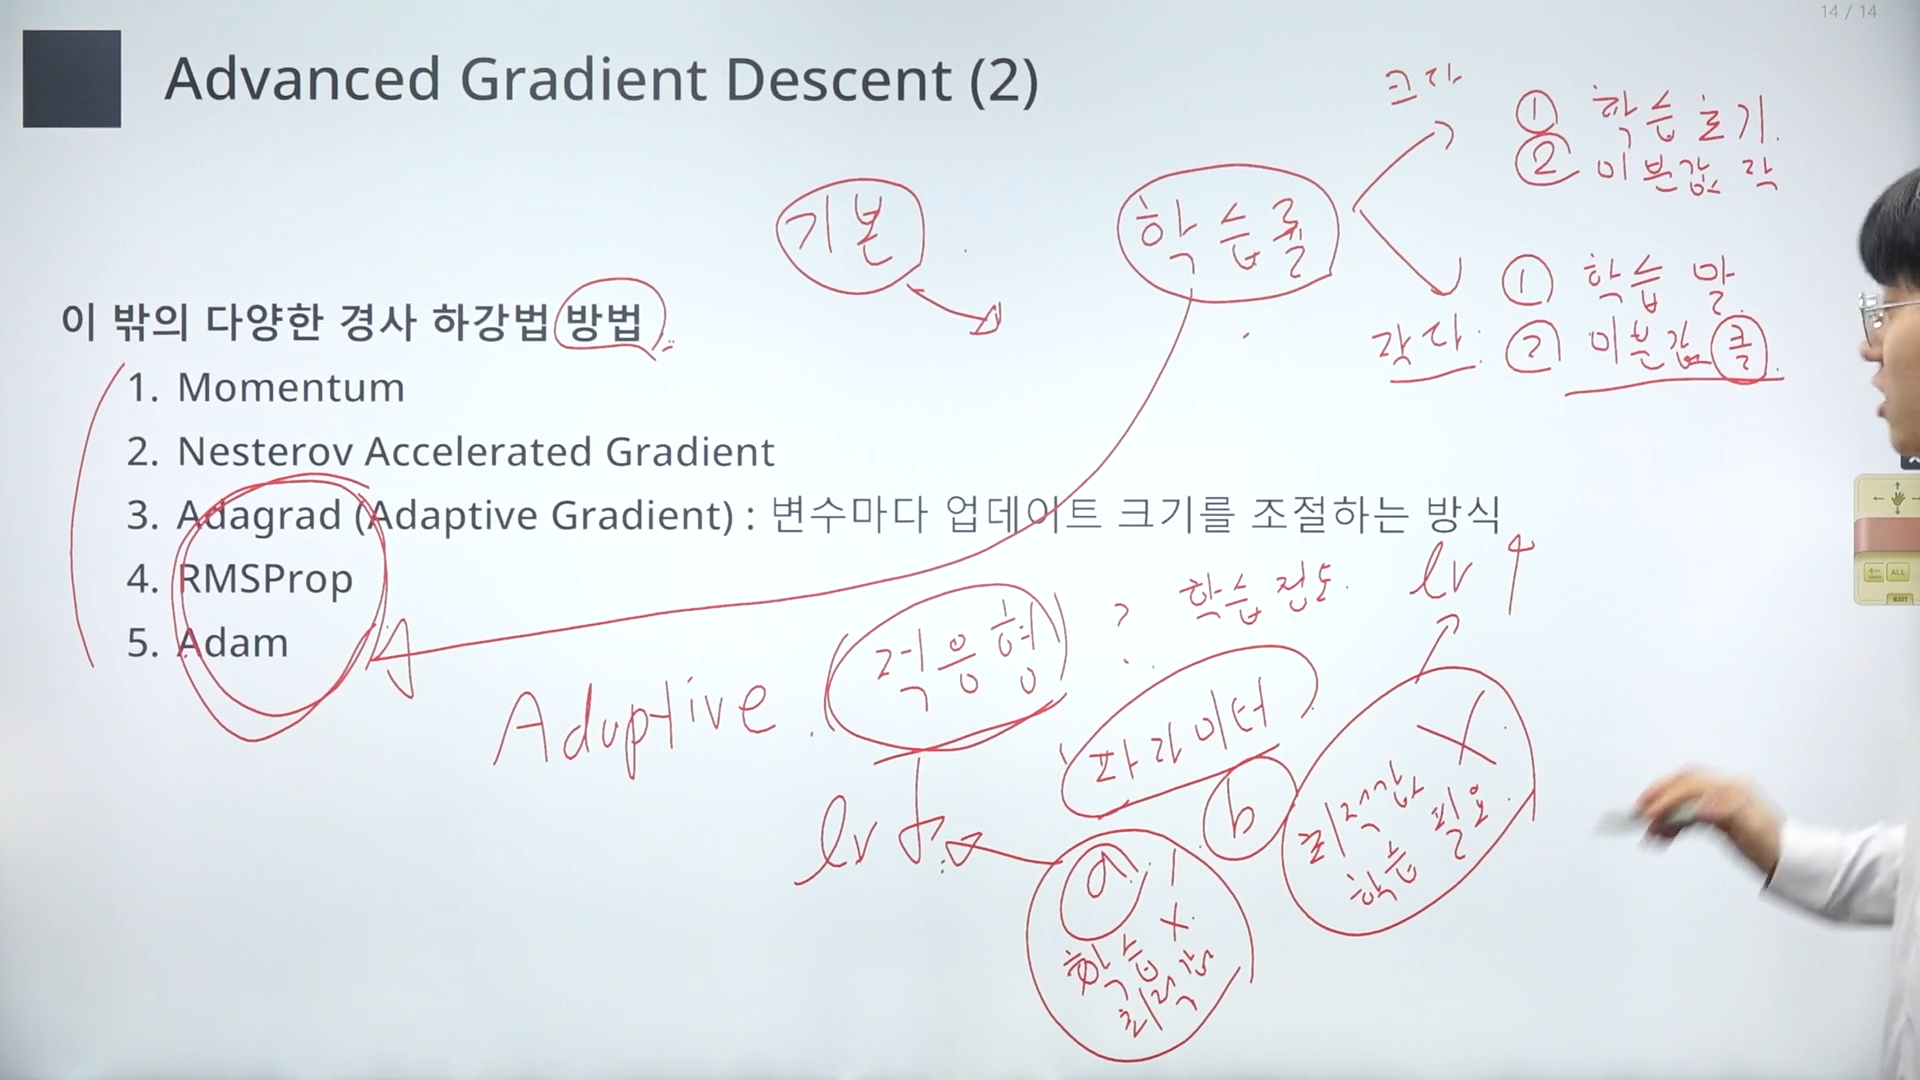 14 / 14
Advanced Gradient Descent (2)
크다
① 학습 초기.
② 미분값 작
기본
학습률
작다.
① 학습 말.
② 미분값 클.
이 밖의 다양한 경사 하강법 방법
1. Momentum
2. Nesterov Accelerated Gradient
3. Adagrad (Adaptive Gradient) : 변수마다 업데이트 크기를 조절하는 방식
4. RMSProp
5. Adam
Adaptive. (적응형) ?
학습 정도.
lr ↑
파라미터
lr ↓
a
b
학습 X
최적값
X
최적값
학습 필요
ALL
EXIT